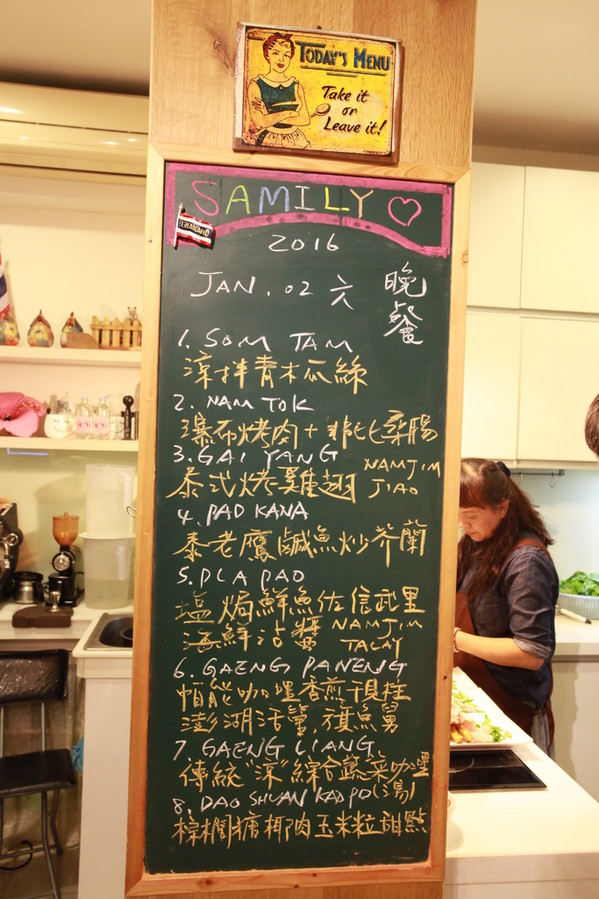 TODAY'S MENU
Take it
or
Leave it!
SAMILY
THAILAND
2016
JAN. 02 六 晚餐
1. SOM TAM
涼拌青木瓜絲
2. NAM TOK
瀑布烤肉+非比桑腸
3. GAI YANG
泰式烤雞翅 NAMJIM JIAO
4. PAD KANA
泰老鷹鹹魚炒芥蘭
5. PLA PAO
塩焗鮮魚佐信武里
海鮮沾醬 NAMJIM TALAY
6. GAENG PANENG
帕能咖哩香煎干貝柱
澎湖活管,旗魚舅
7 GAENG LIANG
傳統"涼"綜合蔬菜咖哩
8. DAO SHUAN KAO PO(湯)
棕櫚糖椰肉玉米粒甜點